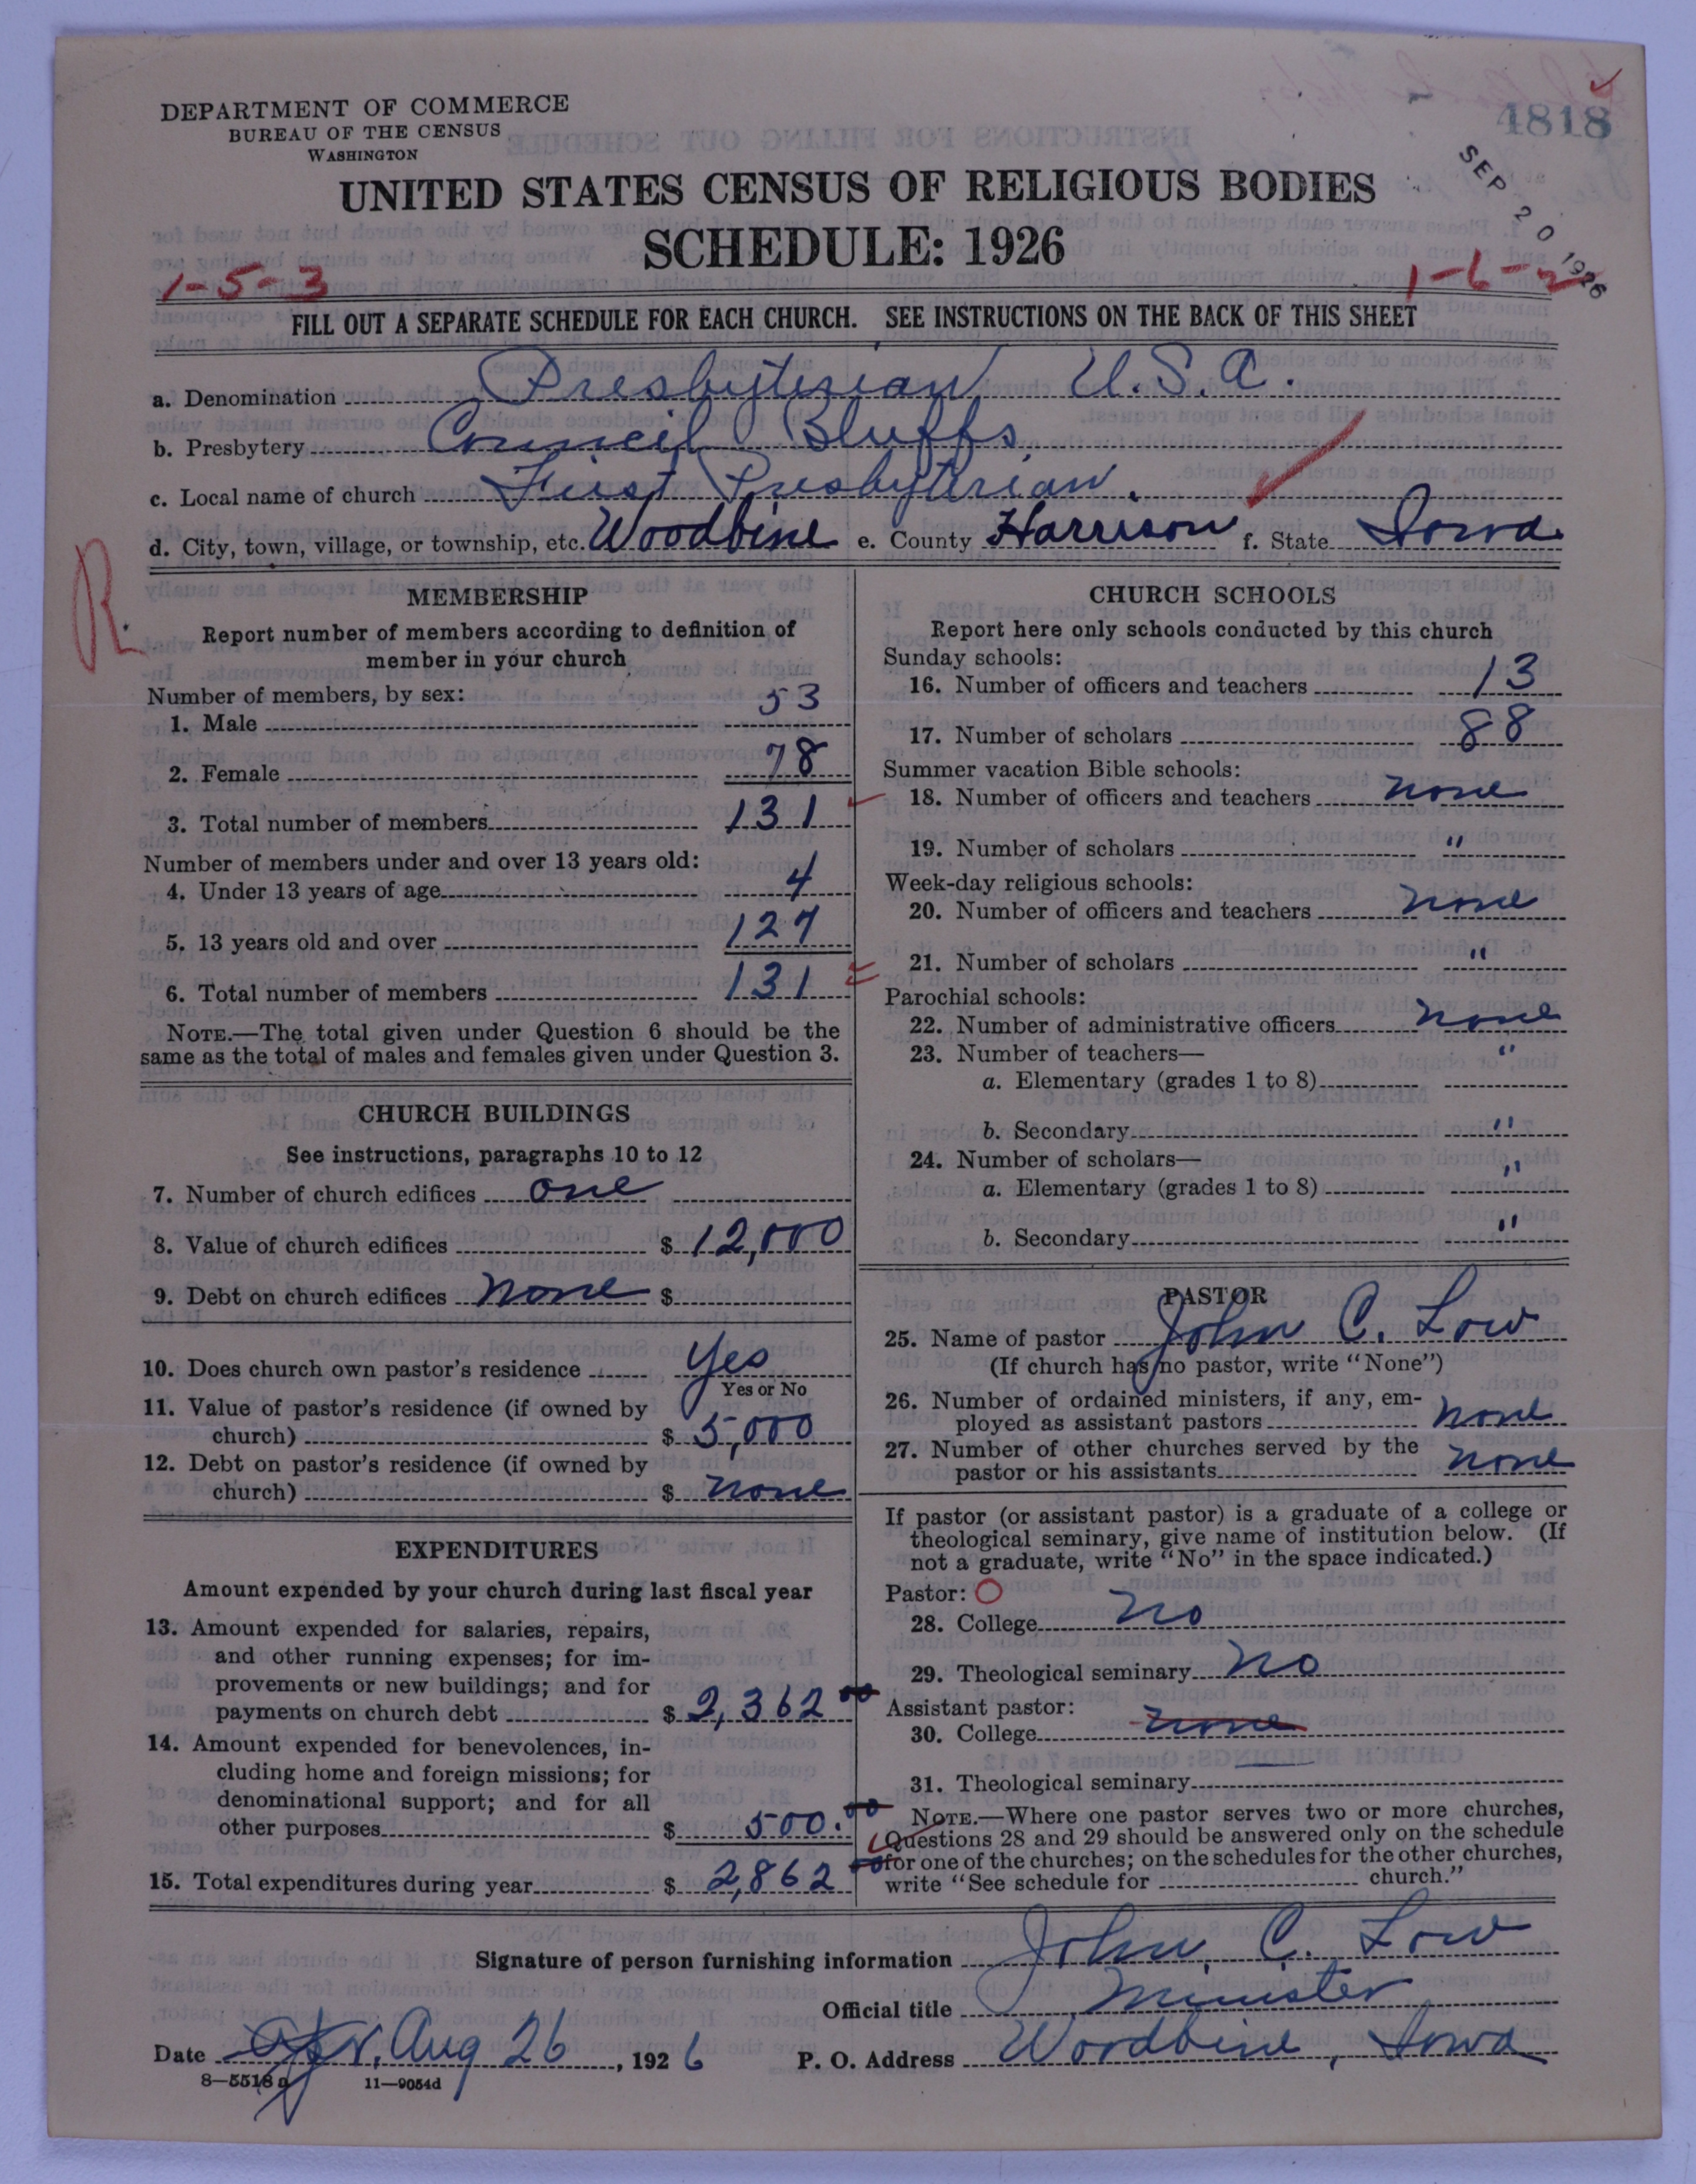 DEPARTMENT OF COMMERCE
BUREAU OF THE CENSUS
WASHINGTON
4818
SEP 20 1926
UNITED STATES CENSUS OF RELIGIOUS BODIES
SCHEDULE: 1926
1-5-3
1-6-2
FILL OUT A SEPARATE SCHEDULE FOR EACH CHURCH. SEE INSTRUCTIONS ON THE BACK OF THIS SHEET
a. Denomination Presbyterian U.S.A.
b. Presbytery Council Bluffs
c. Local name of church First Presbyterian.
d. City, town, village, or township, etc. Woodbine e. County Harrison f. State Iowa.
R.
MEMBERSHIP
Report number of members according to definition of
member in your church
Number of members, by sex:
1. Male 53
2. Female 78
3. Total number of members 131
Number of members under and over 13 years old:
4. Under 13 years of age 4
5. 13 years old and over 127
6. Total number of members 131
NOTE.—The total given under Question 6 should be the
same as the total of males and females given under Question 3.
CHURCH BUILDINGS
See instructions, paragraphs 10 to 12
7. Number of church edifices one
8. Value of church edifices $ 12,000
9. Debt on church edifices none $
10. Does church own pastor's residence Yes
Yes or No
11. Value of pastor's residence (if owned by
church) $ 5,000
12. Debt on pastor's residence (if owned by
church) $ none
EXPENDITURES
Amount expended by your church during last fiscal year
13. Amount expended for salaries, repairs,
and other running expenses; for im-
provements or new buildings; and for
payments on church debt $ 2,362 00
14. Amount expended for benevolences, in-
cluding home and foreign missions; for
denominational support; and for all
other purposes $ 500.00
15. Total expenditures during year $ 2,862 00
CHURCH SCHOOLS
Report here only schools conducted by this church
Sunday schools:
16. Number of officers and teachers 13
17. Number of scholars 88
Summer vacation Bible schools:
18. Number of officers and teachers none
19. Number of scholars "
Week-day religious schools:
20. Number of officers and teachers none
21. Number of scholars "
Parochial schools:
22. Number of administrative officers none
23. Number of teachers— "
a. Elementary (grades 1 to 8)
b. Secondary "
24. Number of scholars— "
a. Elementary (grades 1 to 8)
b. Secondary "
PASTOR
25. Name of pastor John C. Low
(If church has no pastor, write "None")
26. Number of ordained ministers, if any, em-
ployed as assistant pastors none
27. Number of other churches served by the
pastor or his assistants none
If pastor (or assistant pastor) is a graduate of a college or
theological seminary, give name of institution below. (If
not a graduate, write "No" in the space indicated.)
Pastor: O
28. College No
29. Theological seminary No
Assistant pastor:
30. College none
31. Theological seminary
NOTE.—Where one pastor serves two or more churches,
Questions 28 and 29 should be answered only on the schedule
for one of the churches; on the schedules for the other churches,
write "See schedule for church."
Signature of person furnishing information John C. Low
Official title Minister
Date Aug 26, 1926 P. O. Address Woodbine, Iowa
8—5518 a 11—9054d